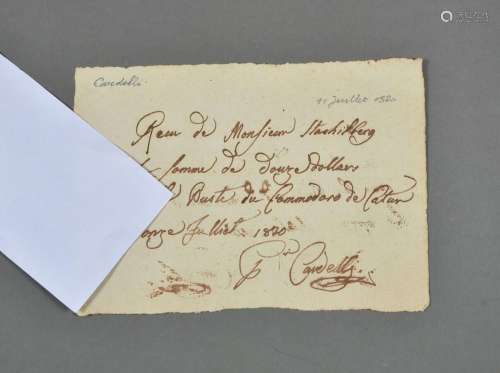 Cardelli
11 juillet 1820
Recu de Monsieur Stackelberg
somme de douze dollars
Buste du Commodore de Catur
onze Julliet 1820
P. Cardelli